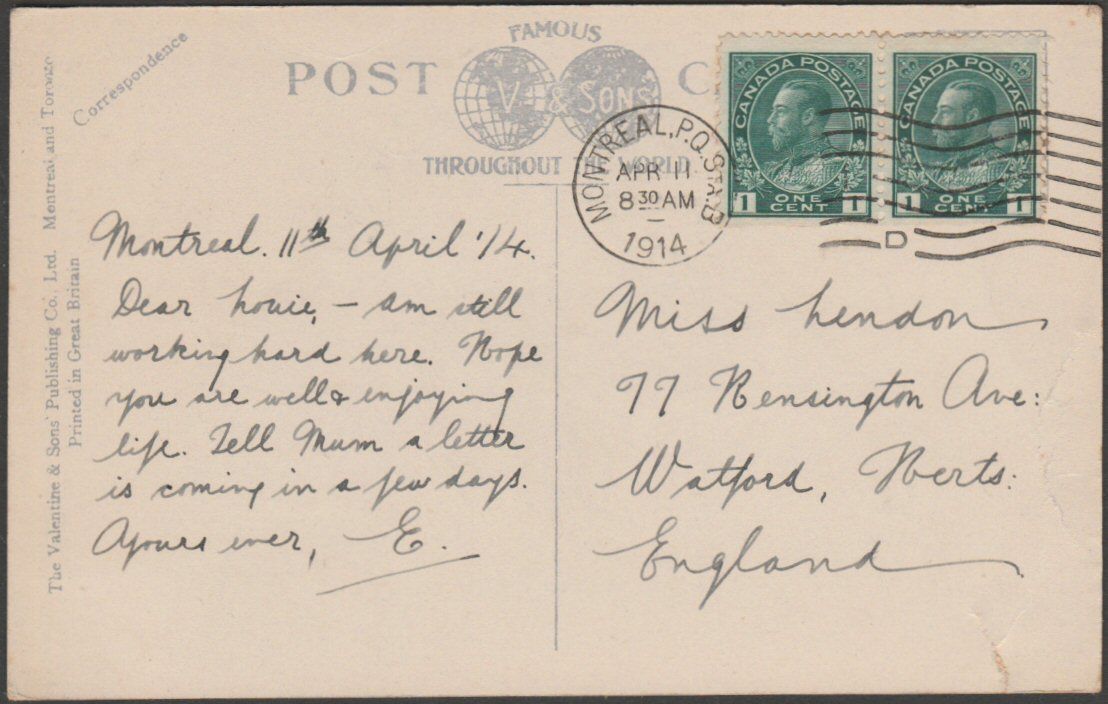 Correspondence
FAMOUS
POST C
V & SONS
THROUGHOUT THE WORLD
The Valentine & Sons' Publishing Co., Ltd. Montreal and Toronto
Printed in Great Britain
CANADA POSTAGE
1 ONE CENT 1
CANADA POSTAGE
1 ONE CENT 1
MONTREAL, P.Q. STA. B
APR 11
8 30 AM
1914
D
Montreal. 11th April '14.
Dear Louie, – am still
working hard here. Hope
you are well & enjoying
life. Tell Mum a letter
is coming in a few days.
Yours ever, E.
Miss Lendon
77 Kensington Ave:
Watford, Herts:
England